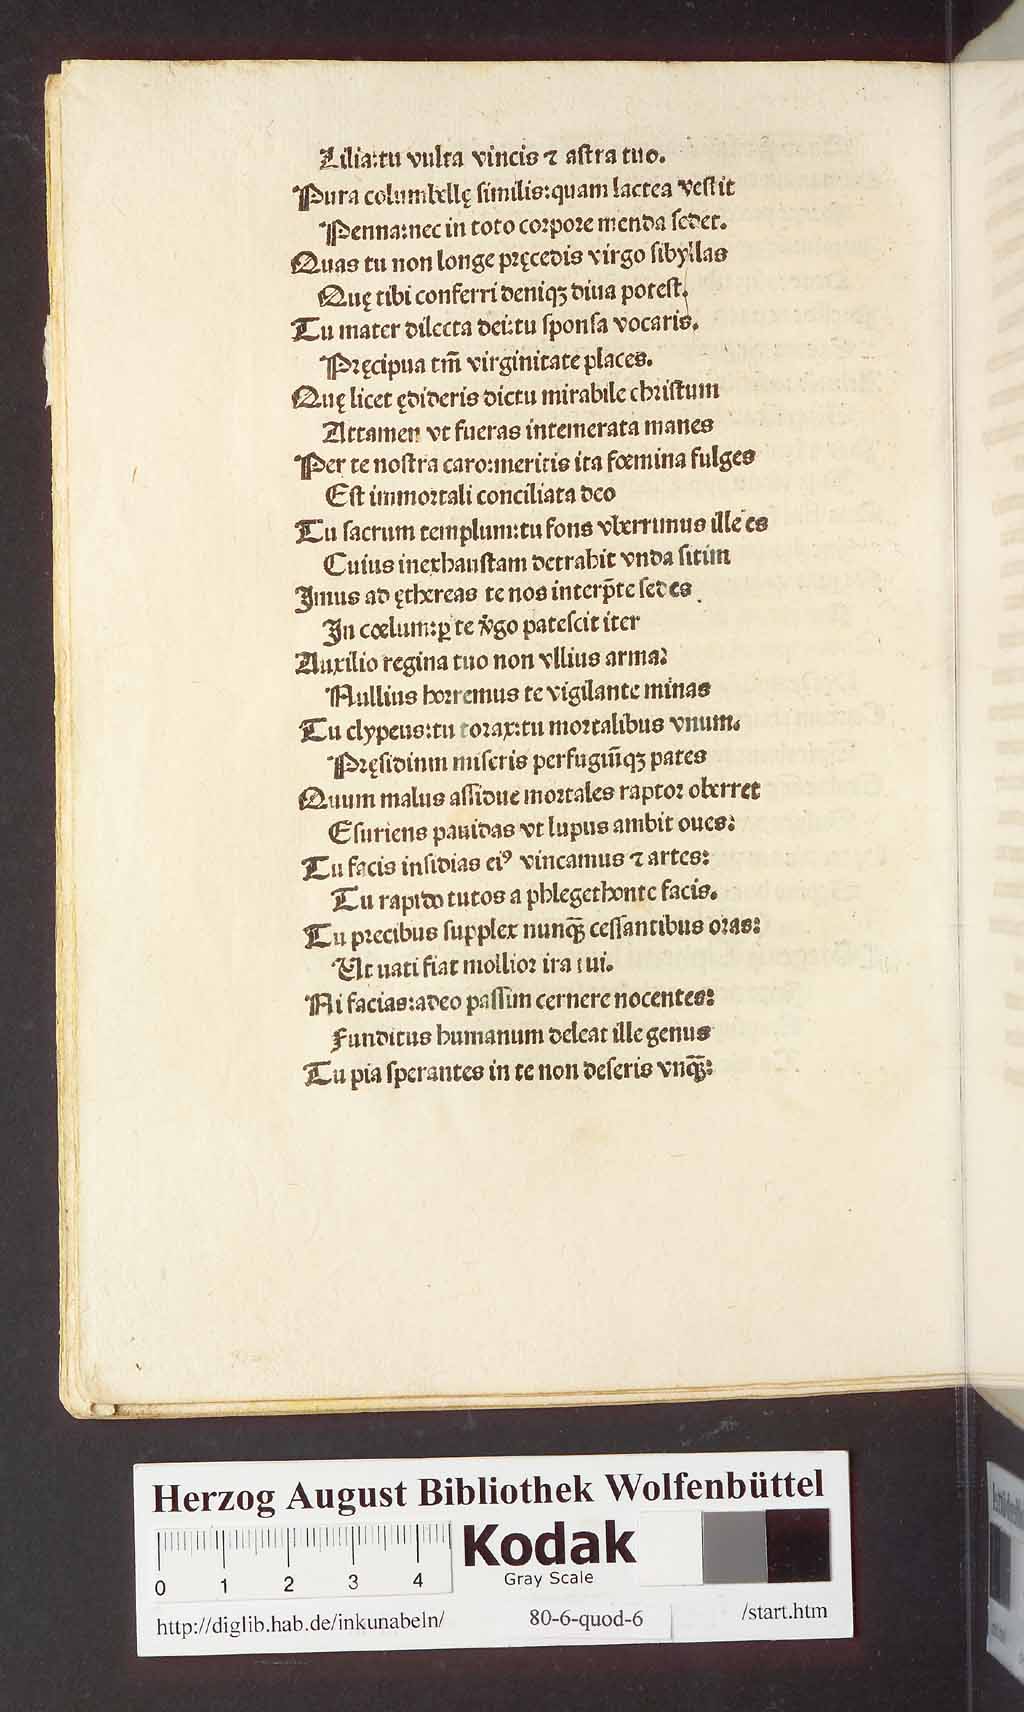 Lilia:tu vulta vincis ⁊ astra tuo.
Pura columbellę similis:quam lactea vestit
Penna:nec in toto corpore menda sedet.
Quas tu non longe pręcedis virgo sibyllas
Quę tibi conferri deniqꝫ diua potest.
Tu mater dilecta dei:tu sponsa vocaris.
Pręcipua tm̃ virginitate places.
Quę licet ędideris dictu mirabile christum
Attamen vt fueras intemerata manes
Per te nostra caro:meritis ita fœmina fulges
Est immortali conciliata deo
Tu sacrum templum:tu fons vberrimus ille es
Cuius inexhaustam detrahit vnda sitim
Imus ad ęthereas te nos interp̃te sedes.
In cœlum:ꝑ te v̾go patescit iter
Auxilio regina tuo non vllius arma:
Nullius horremus te vigilante minas
Tu clypeus:tu torax:tu mortalibus vnum.
Pręsidium miseris perfugiũqꝫ pates
Quum malus assidue mortales raptor oberret
Esuriens pauidas vt lupus ambit oues:
Tu facis insidias eiꝰ vincamus ⁊ artes:
Tu rapido tutos a phlegethonte facis.
Tu precibus supplex nunqꝫ̃ cessantibus oras:
Ut nati fiat mollior ira tui.
Ni facias:adeo passim cernere nocentes:
Funditus humanum deleat ille genus
Tu pia sperantes in te non deseris vnqꝫ̃:
Herzog August Bibliothek Wolfenbüttel
Kodak
Gray Scale
0 1 2 3 4
http://diglib.hab.de/inkunabeln/ 80-6-quod-6 /start.htm